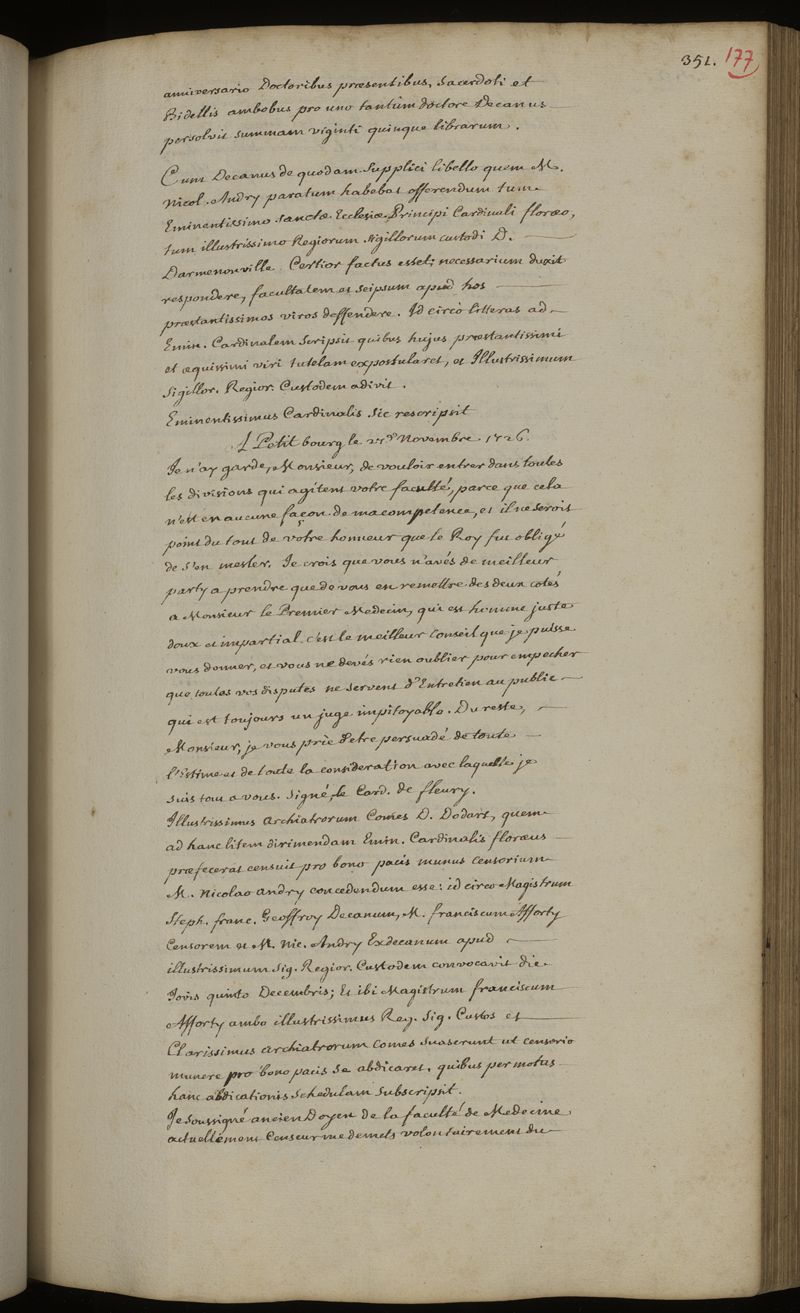 351. 177
anniversario Doctoribus præsentibus, Sacerdoti et
Bidellis ambobus pro uno tantùm doctore Decanus
persolvit summam viginti quinque librarum.
Cum Decanus de quodam supplici libello quem M.
Nicol. Andry paratum habebat offerendum tum
Eminentissimo Sanctæ Ecclesiæ Principi Cardinali floræo,
tum illustrissimo Regiorum sigillorum custodi D.
Darmenonville Certior factus esset; necessarium duxit
respondere, facultatem et seipsum apud hos
præstantissimos viros deffendere. Id circò litteras ad
Emin. Cardinalem scripsit quibus hujus præstantissimi
et æquissimi viri tutelam expostularet, et Illustrissimum
Sigillor. Regior. Custodem adivit.
Eminentissimus Cardinalis sic rescripsit
Petit bourg le Novembre 1726.
Je n'ay garde, Monsieur, de vouloir entrer dans toutes
les divisions qui agitent votre faculté, parce que cela
n'est en aucune façon de ma competence, et il ne seroit
point du tout de votre honneur que le Roy fut obligé
de s'en mesler. Je crois que vous n'avés de meilleur
party a prendre que de vous en remettre des deux cotés
a Monsieur le Premier Medecin, qui est homme juste
doux et impartial. c'est le meilleur Conseil que je puisse
vous donner, et vous ne devés rien oublier pour empecher
que toutes vos disputes ne servent d'Entretien au public
qui est toujours un juge impitoyable. Du reste,
Monsieur, je vous prie d'etre persuadé de toute
l'Estime et de toute la consideration avec laquelle je
suis tout a vous. Signé, le Card. de fleury.
Illustrissimus archiatrorum Comes D. Dodart, quem
ad hanc litem dirimendam Emin. Cardinalis floræus
præfecerat censuit pro bono pacis munus Censorium
M. Nicolao Andry concedendum esse: id circo Magistrum
Steph. franc. Geoffroy Decanum, M. franciscum Afforty
Censorem et M. Nic. Andry Exdecanum apud
illustrissimum Sig. Regior. Custodem convocavit die
Jovis quinto Decembris; Et ibi Magistrum franciscum
Afforty ambo illustrissimus Reg. Sig. Custos et
Clarissimus archiatrorum Comes suaserunt ut censorio
munere pro bono pacis se abdicaret, quibus permotus
hanc abdicationis schedulam subscripsit.
Je soussigné ancien Doyen de la faculté de Medecine
actuellement Censeur me demets volontairement du